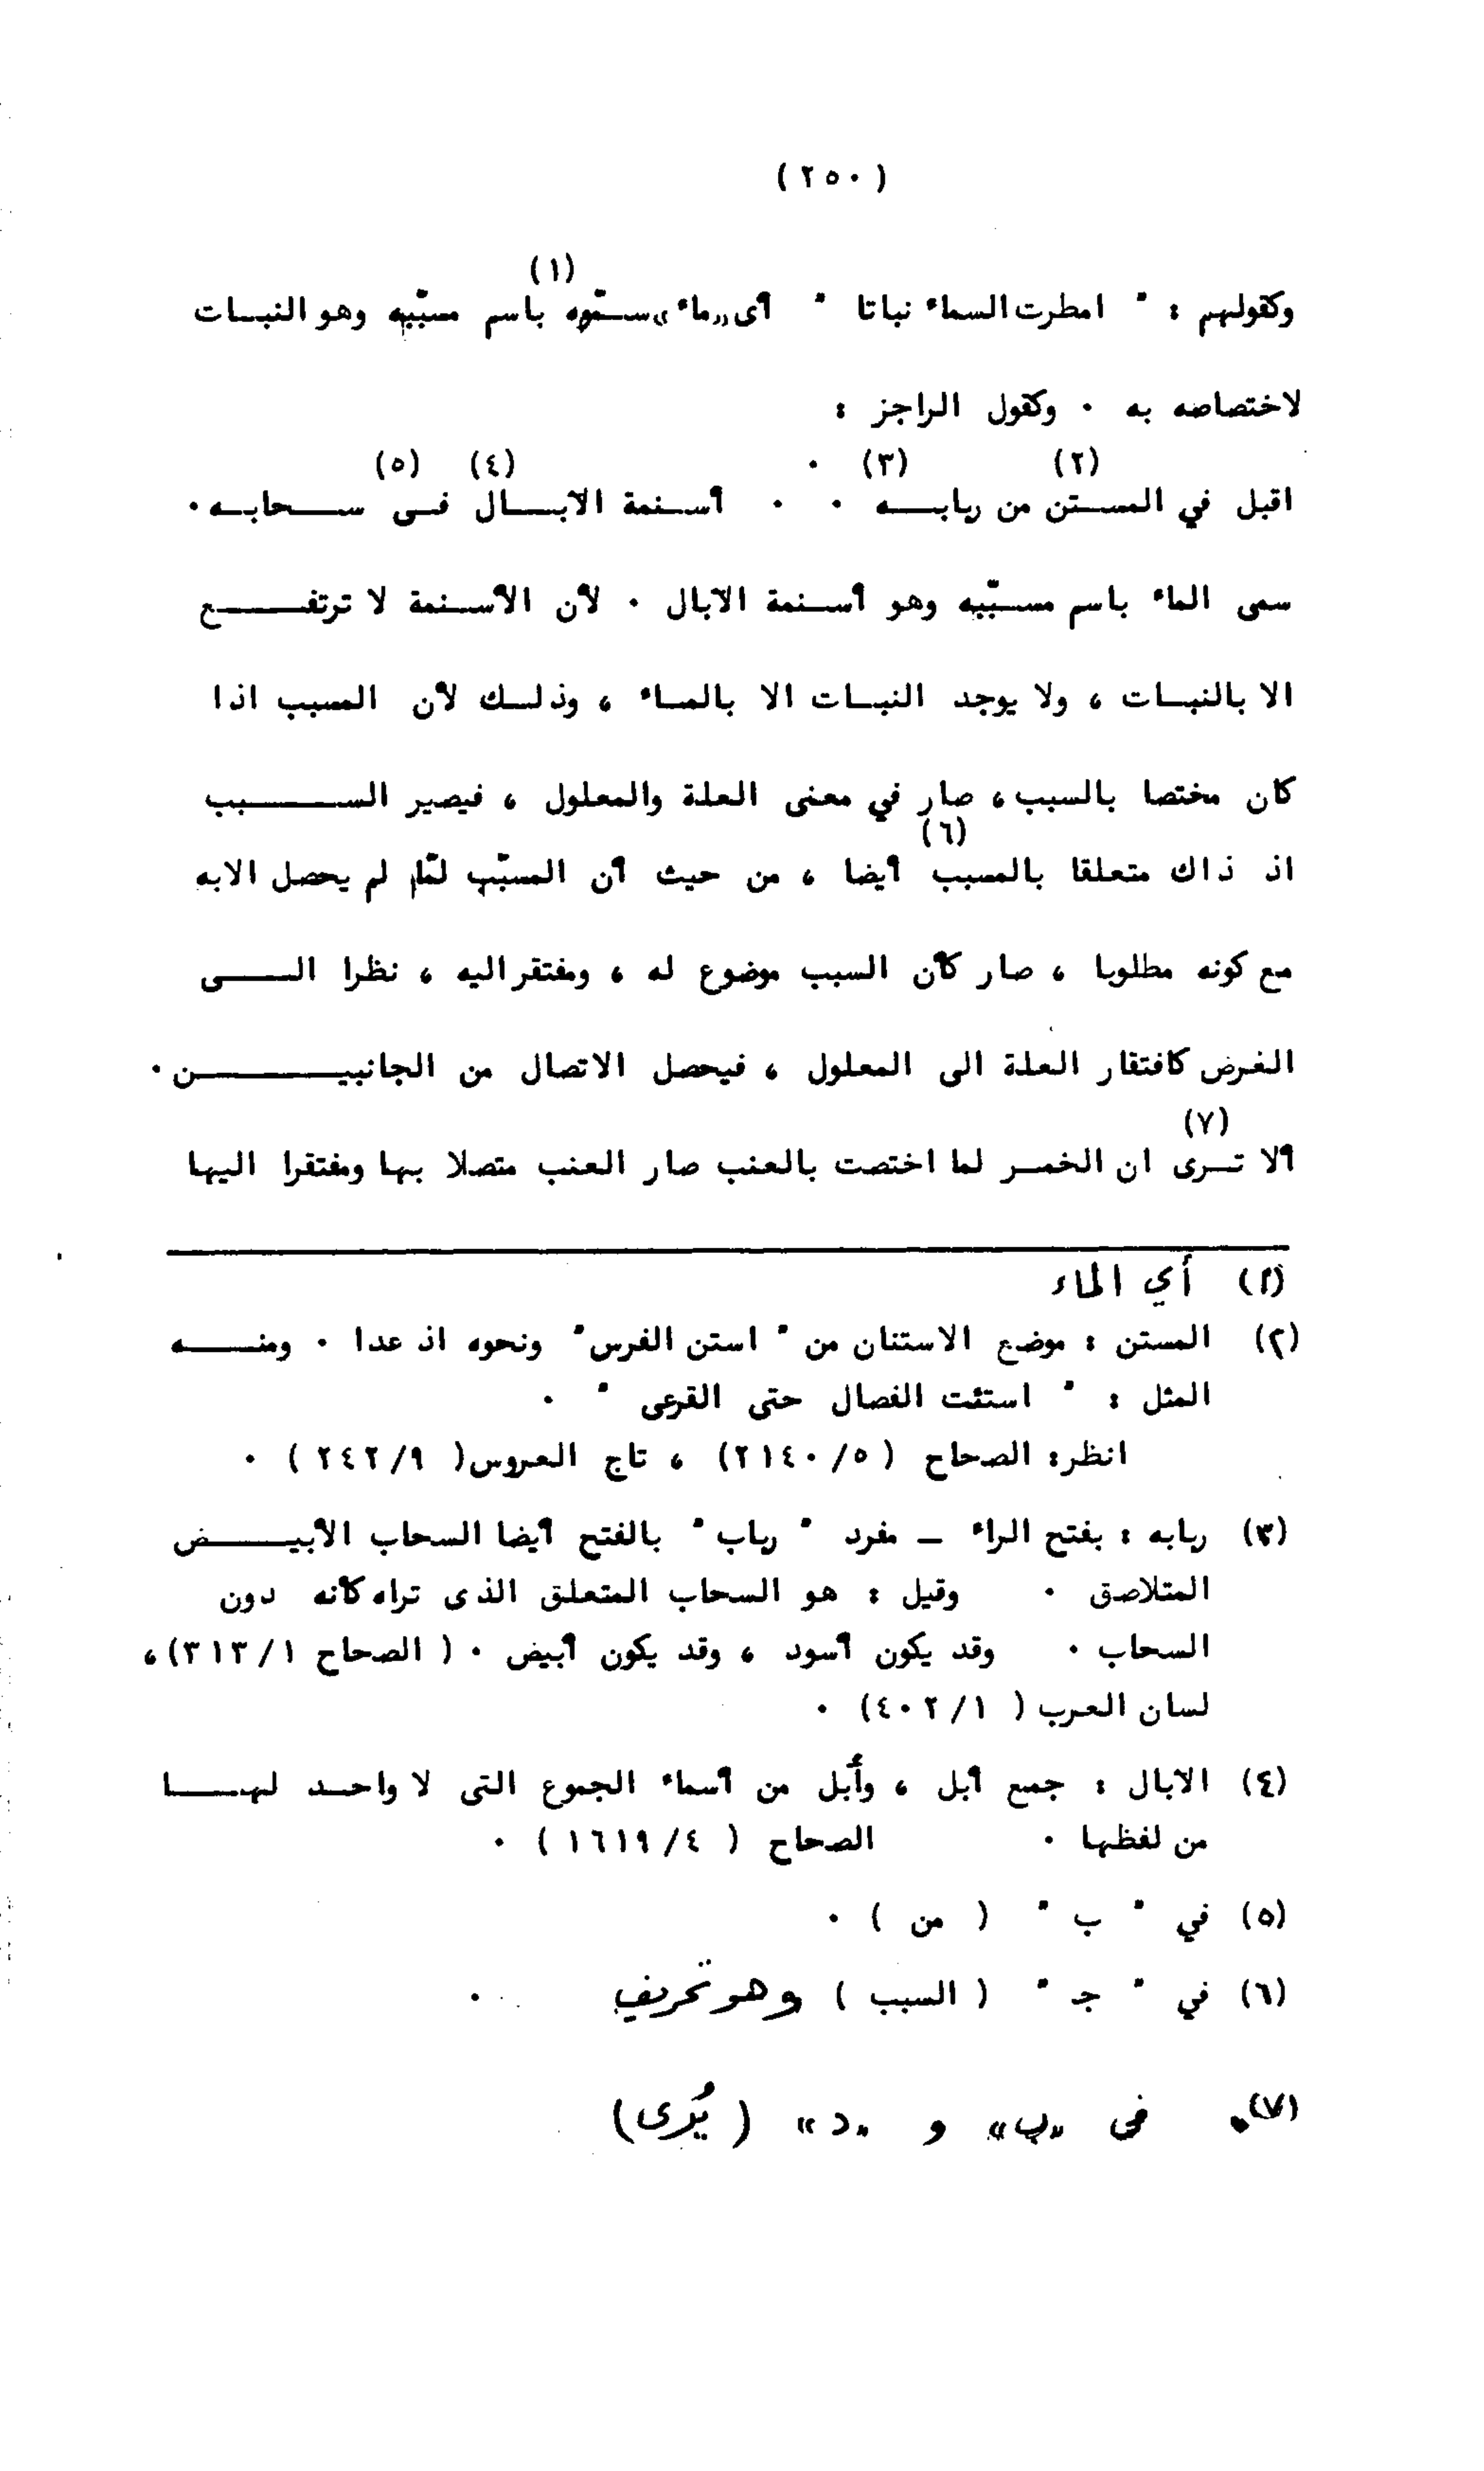 ( ٢٥٠ )
(١)
وكقولهم : " امطرت السماء نباتا " أى «ماء» سمّوه باسم مسبّبه وهو النبات
لاختصاصه به . وكقول الراجز :
(٢) (٣) . (٤) (٥)
اقبل في المستن من ربابه . . أسنمة الآبال فى سحابه .
سمى الماء باسم مسبّبه وهو أسنمة الآبال . لأن الأسنمة لا ترتفع
الا بالنبات ، ولا يوجد النبات الا بالماء ، وذلك لأن المسبب اذا
كان مختصا بالسبب ، صار في معنى العلة والمعلول ، فيصير السبب
(٦)
اذ ذاك متعلقا بالمسبب أيضا ، من حيث أن المسبّب لمّا لم يحصل الابه
مع كونه مطلوبا ، صار كأن السبب موضوع له ، ومفتقر اليه ، نظرا الى
الغرض كافتقار العلة الى المعلول ، فيحصل الاتصال من الجانبين .
(٧)
ألا ترى ان الخمر لما اختصت بالعنب صار العنب متصلا بها ومفتقرا اليها
(١) أي الماء
(٢) المستن : موضع الاستنان من " استن الفرس " ونحوه اذ عدا . ومنه
المثل : " استنت الفصال حتى القرعى " .
انظر : الصحاح ( ٢١٤٠/٥ ) ، تاج العروس ( ٢٤٢/٩ ) .
(٣) ربابه : بفتح الراء – مفرد " رباب " بالفتح أيضا السحاب الأبيض
المتلاصق . وقيل : هو السحاب المتعلق الذى تراه كأنه دون
السحاب . وقد يكون أسود ، وقد يكون أبيض . ( الصحاح ٣١٣/١) ،
لسان العرب ( ٤٠٢/١ ) .
(٤) الآبال : جمع أبل ، وأبل من أسماء الجموع التى لا واحد لها
من لفظها . الصحاح ( ١٦١٩/٤ ) .
(٥) في " ب " ( من ) .
(٦) في " جـ " ( السبب ) وهو تحريف .
(٧) فى «ب» و «د» ( يُرى )